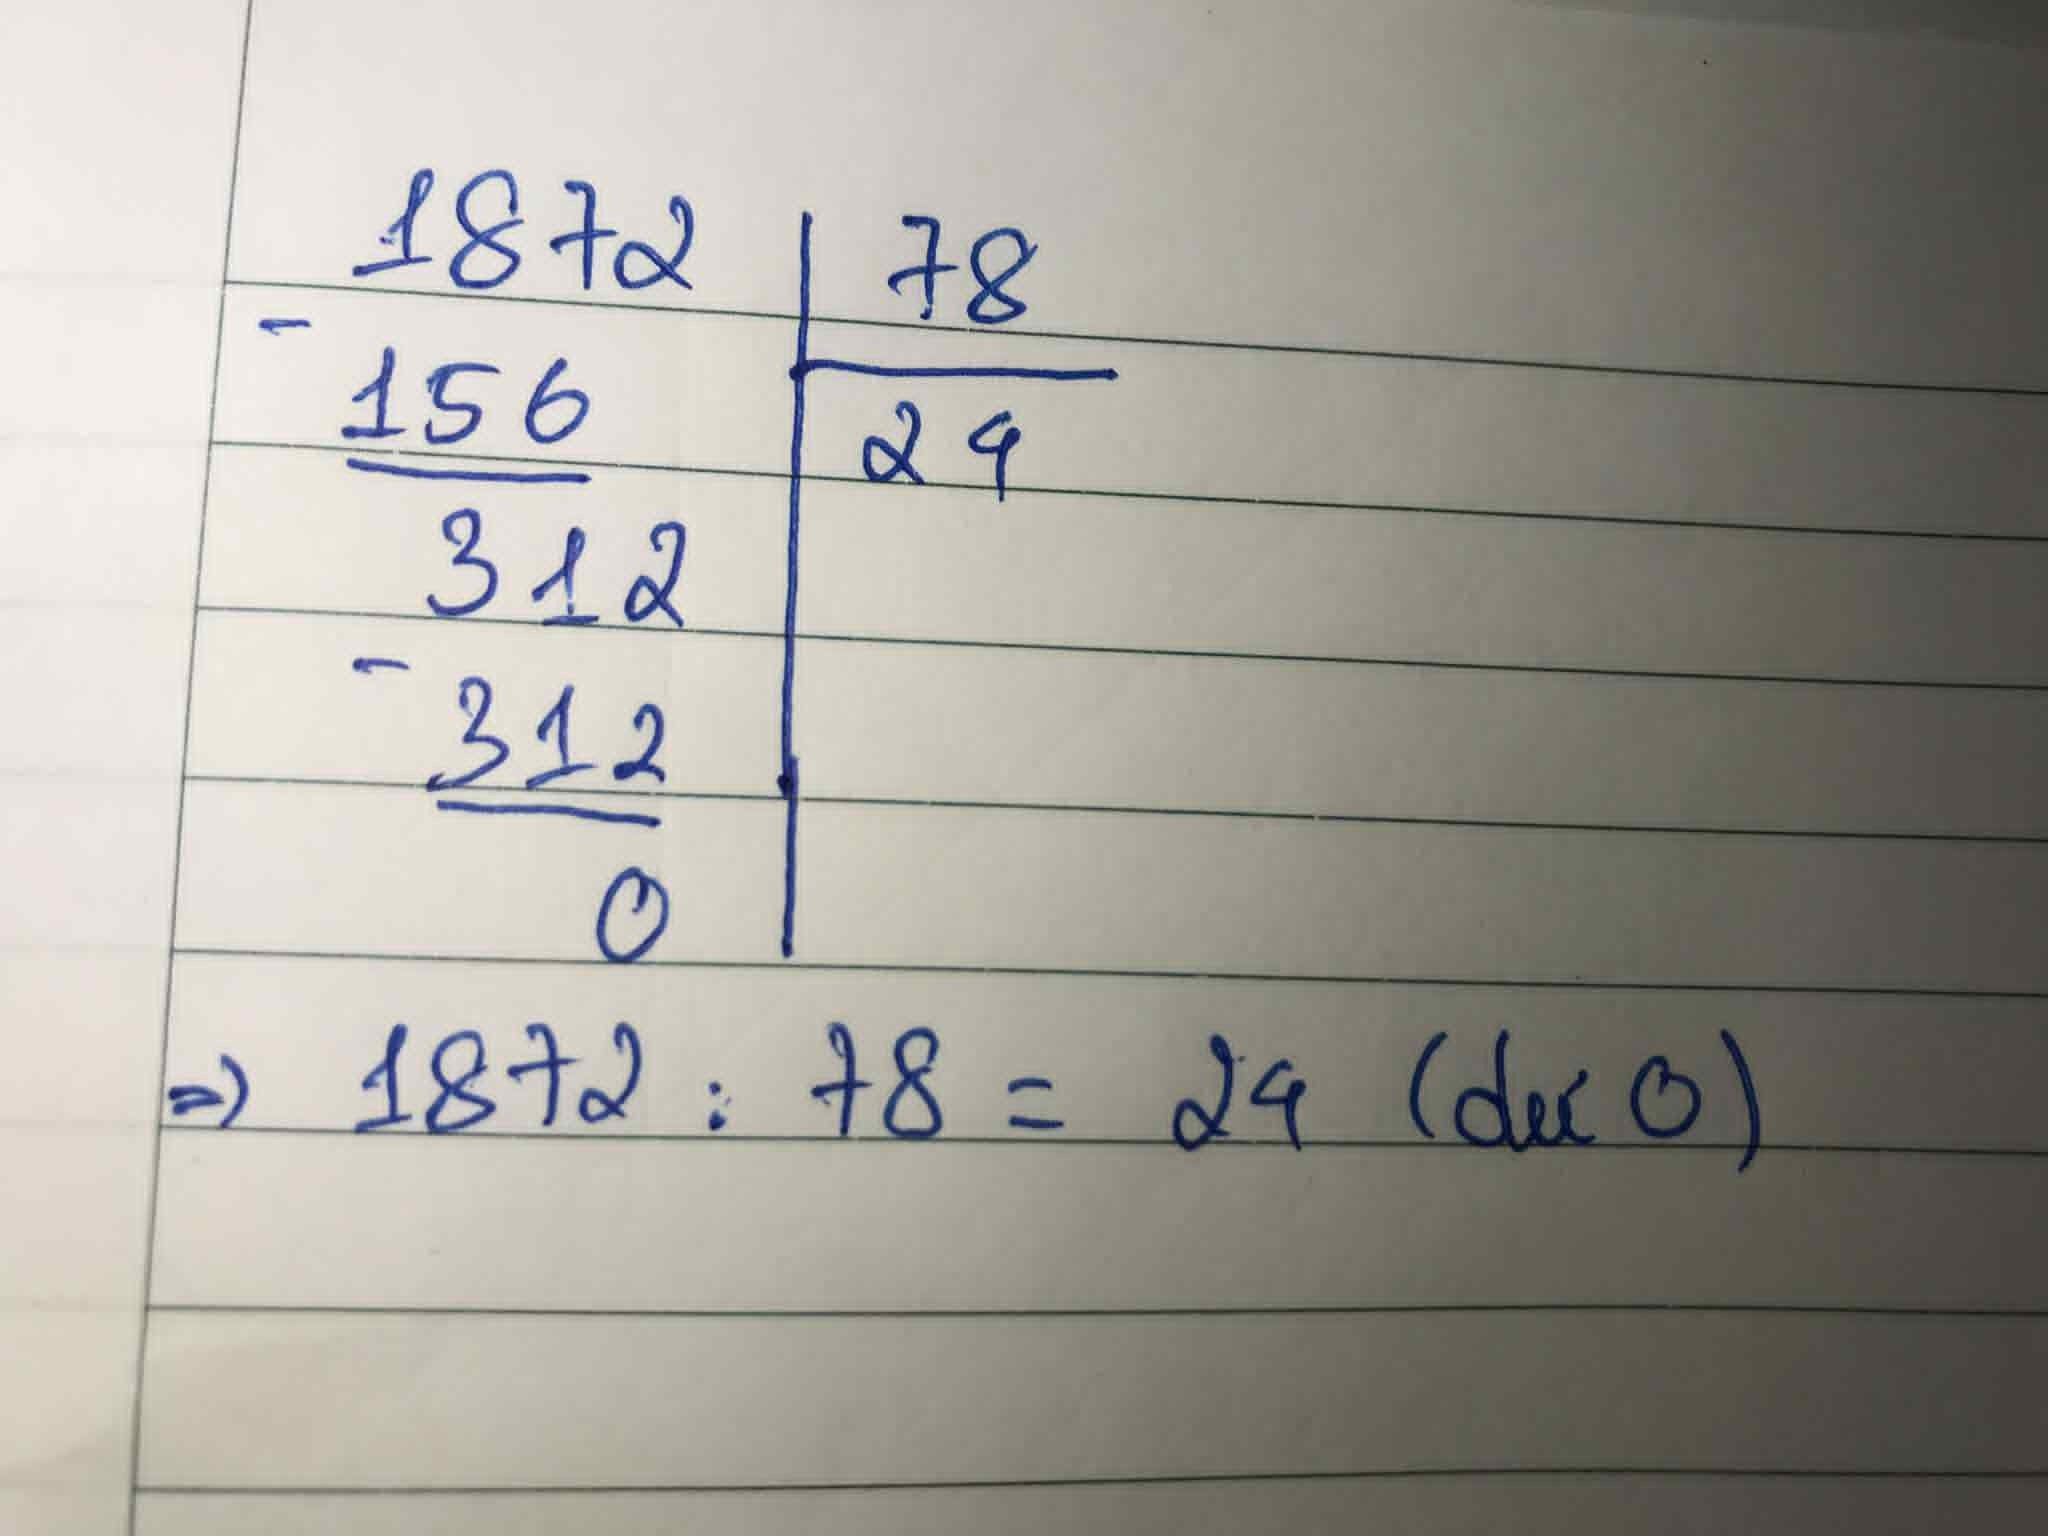 1872 | 78
- 156 | 24
312
- 312
0
=> 1872 : 78 = 24 (dư 0)